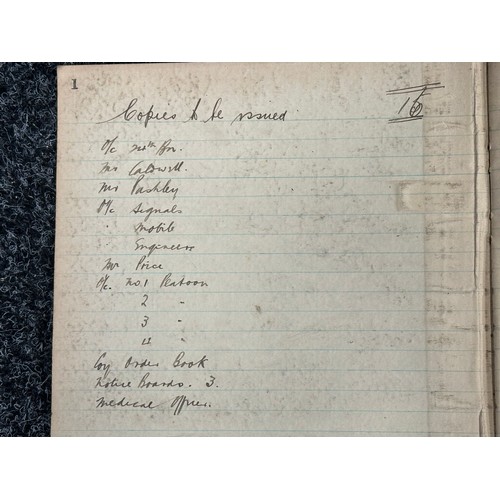 1
Copies to be issued. 16
O/c 20th Bn.
Mr Caldwell.
Mr Pashley
O/c Signals
" Mobile
" Engineers
Mr Price
O/c. No. 1 Platoon
2 "
3 "
4 "
Coy Order Book
Notice Boards. 3.
Medical Officer.